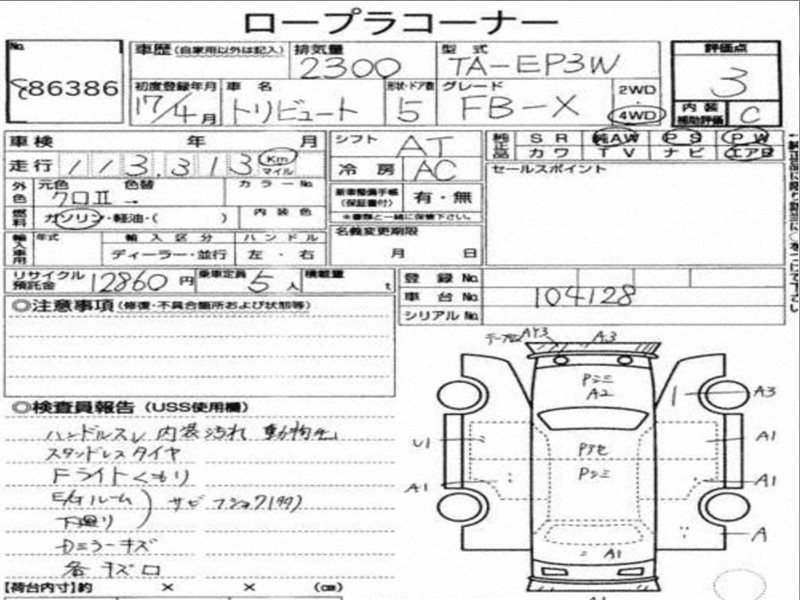 ロープラコーナー
No. 86386
車歴 (自家用以外は記入) 排気量 2300 型式 TA-EP3W 評価点 3
初度登録年月 17/4月 車名 トリビュート 形状・ドア数 5 グレード FB-X 2WD 4WD 内装補助評価 C
車検 年 月 シフト AT 純正品 SR 純AW PS PW
走行 113,313 Km マイル 冷房 AC カワ TV ナビ エアB
外色 元色 クロII 色替 → カラーNo. 新車整備手帳(保証書付) 有・無 セールスポイント
※書類と一緒に保管下さい。
燃料 ガソリン・軽油・( ) 内装色 名義変更期限 月 日
輸入車用 年式 輸入区分 ハンドル
ディーラー・並行 左・右
リサイクル預託金 12860円 乗車定員 5人 積載量 t 登録No.
車台No. 104128
シリアルNo.
◎注意事項 (修復・不具合箇所および状態等)
AY3 A3
Pシミ
A2
A3
◎検査員報告 (USS使用欄)
ハンドルスレ 内装汚れ 動物毛
U1 Pアセ A1
スタッドレスタイヤ
Pシミ
Fライトくもり
A1 A1
E/gルーム
下廻り
サビ フショク(多)
A
Dミラーキズ
A1
各キズ凹
【荷台内寸】約 × × (cm)
A1